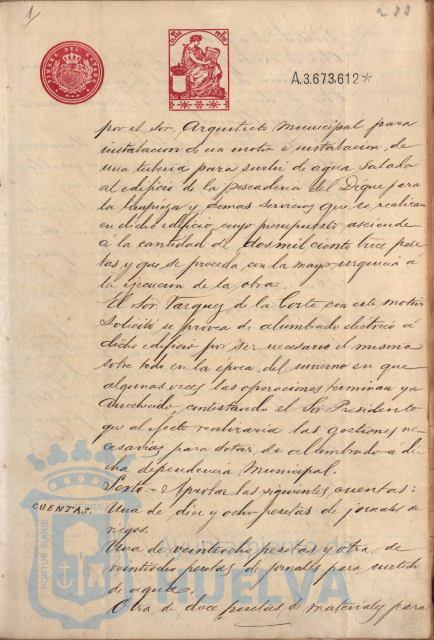 1
288
TIMBRE DEL ESTADO
A.3.673.612*
por el Sor. Arquitecto Municipal para
instalacion de un motor é instalacion de
una tuberia para surtir de agua salada
al edificio de la pescaderia del Dique para
la limpieza y demas servicios que se realizan
en dicho edificio, cuyo presupuesto asciende
á la cantidad de dos mil ciento trece pese-
tas y que se proceda con la mayor urgencia á
la ejecucion de la obra.
El Sor. Vazquez de la Corte con este motivo
solicitó se provea de alumbrado electrico á
dicho edificio por ser necesario el mismo
sobre todo en la época del invierno en que
algunas veces las operaciones terminan ya
anochecido, contestando el Sor Presidente
que al efecto realizaria las gestiones ne-
cesarias para dotar de alumbrado á di-
cha dependencia Municipal.
Sexto.- Aprobar las siguientes cuentas:
CUENTAS.
Una de diez y ocho pesetas de jornales de
riegos.
Otra de veintiocho pesetas y otra de
veintiocho pesetas de jornales para surtido
de agua.
Otra de doce pesetas de materiales para
PORTUS MARIS
Ayuntamiento de
HUELVA